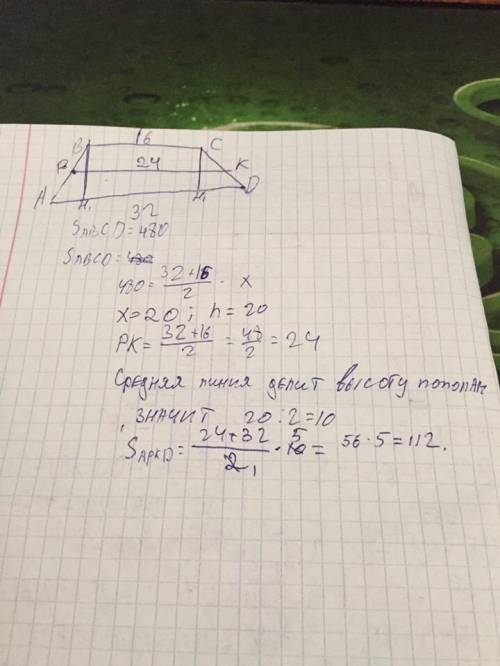 16
B C
P 24 K
A H₁ H₁ D
32
SABCD=480
SABCD=480
480=32+16/2 · x
x=20; h=20
PK=32+16/2=48/2=24
Средняя линия делит высоту пополам
, значит 20:2=10
SAPKD=24+32/2 1 · 10 5= 56·5=112.